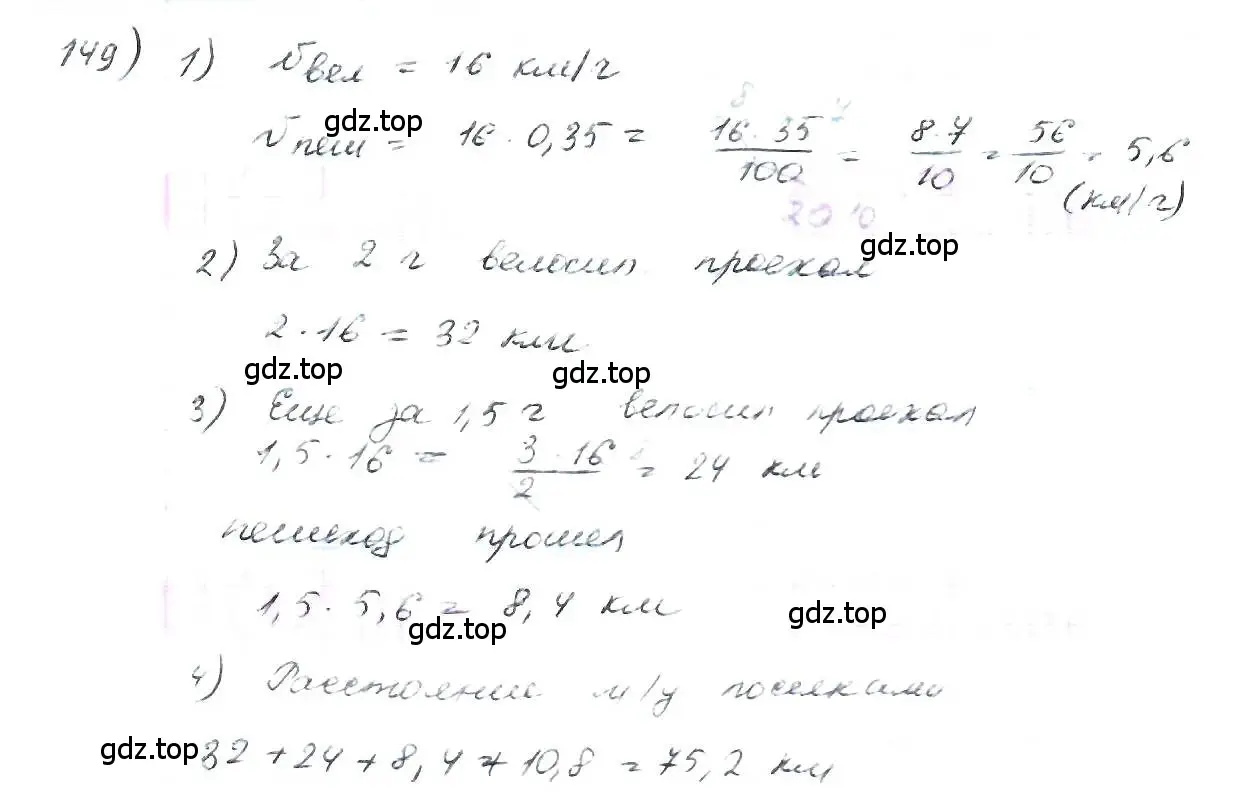 149) 1) Vвел = 16 км/г
gdz.top
Vпеш = 16 · 0,35 = 16 · 35 / 100 = 8 · 7 / 10 = 56 / 10 = 5,6
(км/г)
20 10
gdz.top
2) За 2 г велосип. проехал
2 · 16 = 32 км.
gdz.top gdz.top
3) Еще за 1,5 г велосип проехал
1,5 · 16 = 3 · 16 / 2 = 24 км
пешеход прошел
1,5 · 5,6 = 8,4 км
gdz.top gdz.top
4) Расстояние м/у поселками
gdz.top 32 + 24 + 8,4 + 10,8 = 75,2 км